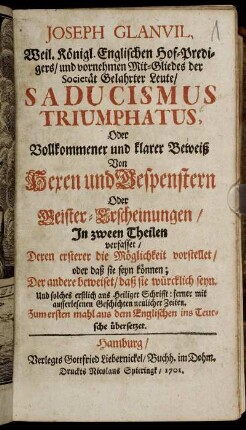 JOSEPH GLANVIL,
Weil. Königl. Englischen Hof-Predi-
gers/ und vornehmen Mit-Gliedes der
Societät Gelahrter Leute/
SADUCISMUS
TRIUMPHATUS,
Oder
Vollkommener und klarer Beweiß
Von
Hexen und Gespenstern
Oder
Geister-Erscheinungen/
In zween Theilen
verfasset/
Deren ersterer die Möglichkeit vorstellet/
oder daß sie seyn können;
Der andere beweiset/ daß sie würcklich seyn.
Und solches erstlich aus Heiliger Schrifft: ferner mit
außerlesenen Geschichten neulicher Zeiten.
Zum ersten mahl aus dem Englischen ins Teut-
sche übersetzet.
Hamburg/
Verlegts Gottfried Liebernickel/ Buchh. im Dohm.
Druckts Nicolaus Spieringk/ 1701.